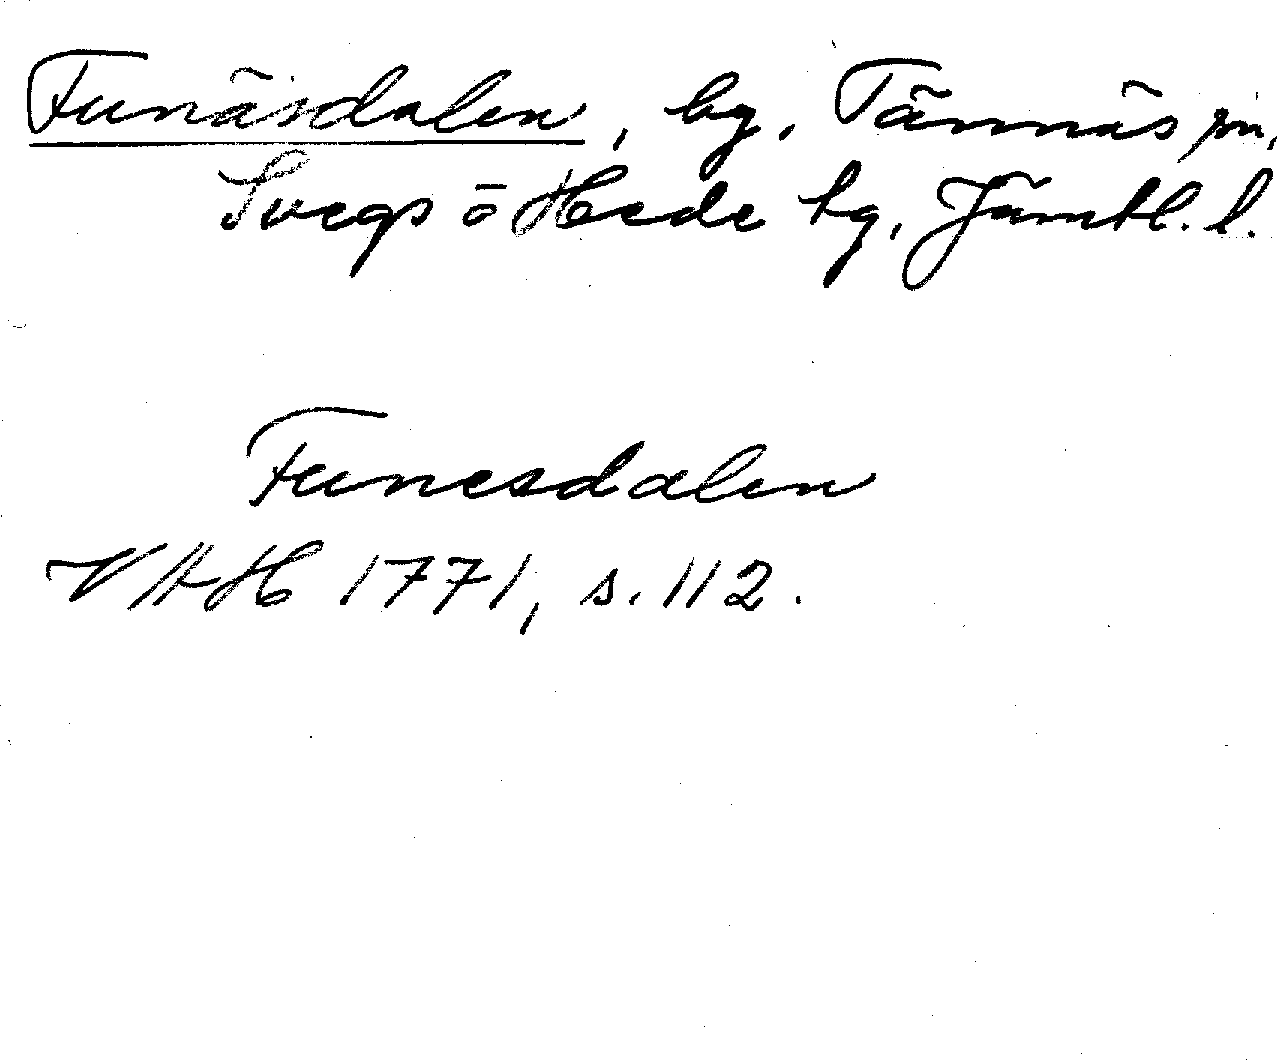 Funäsdalen, by. Tännäs sn,
Svegs o Hede tg, Jämtl. l.
Funesdalen
VAH 1771, s. 112.